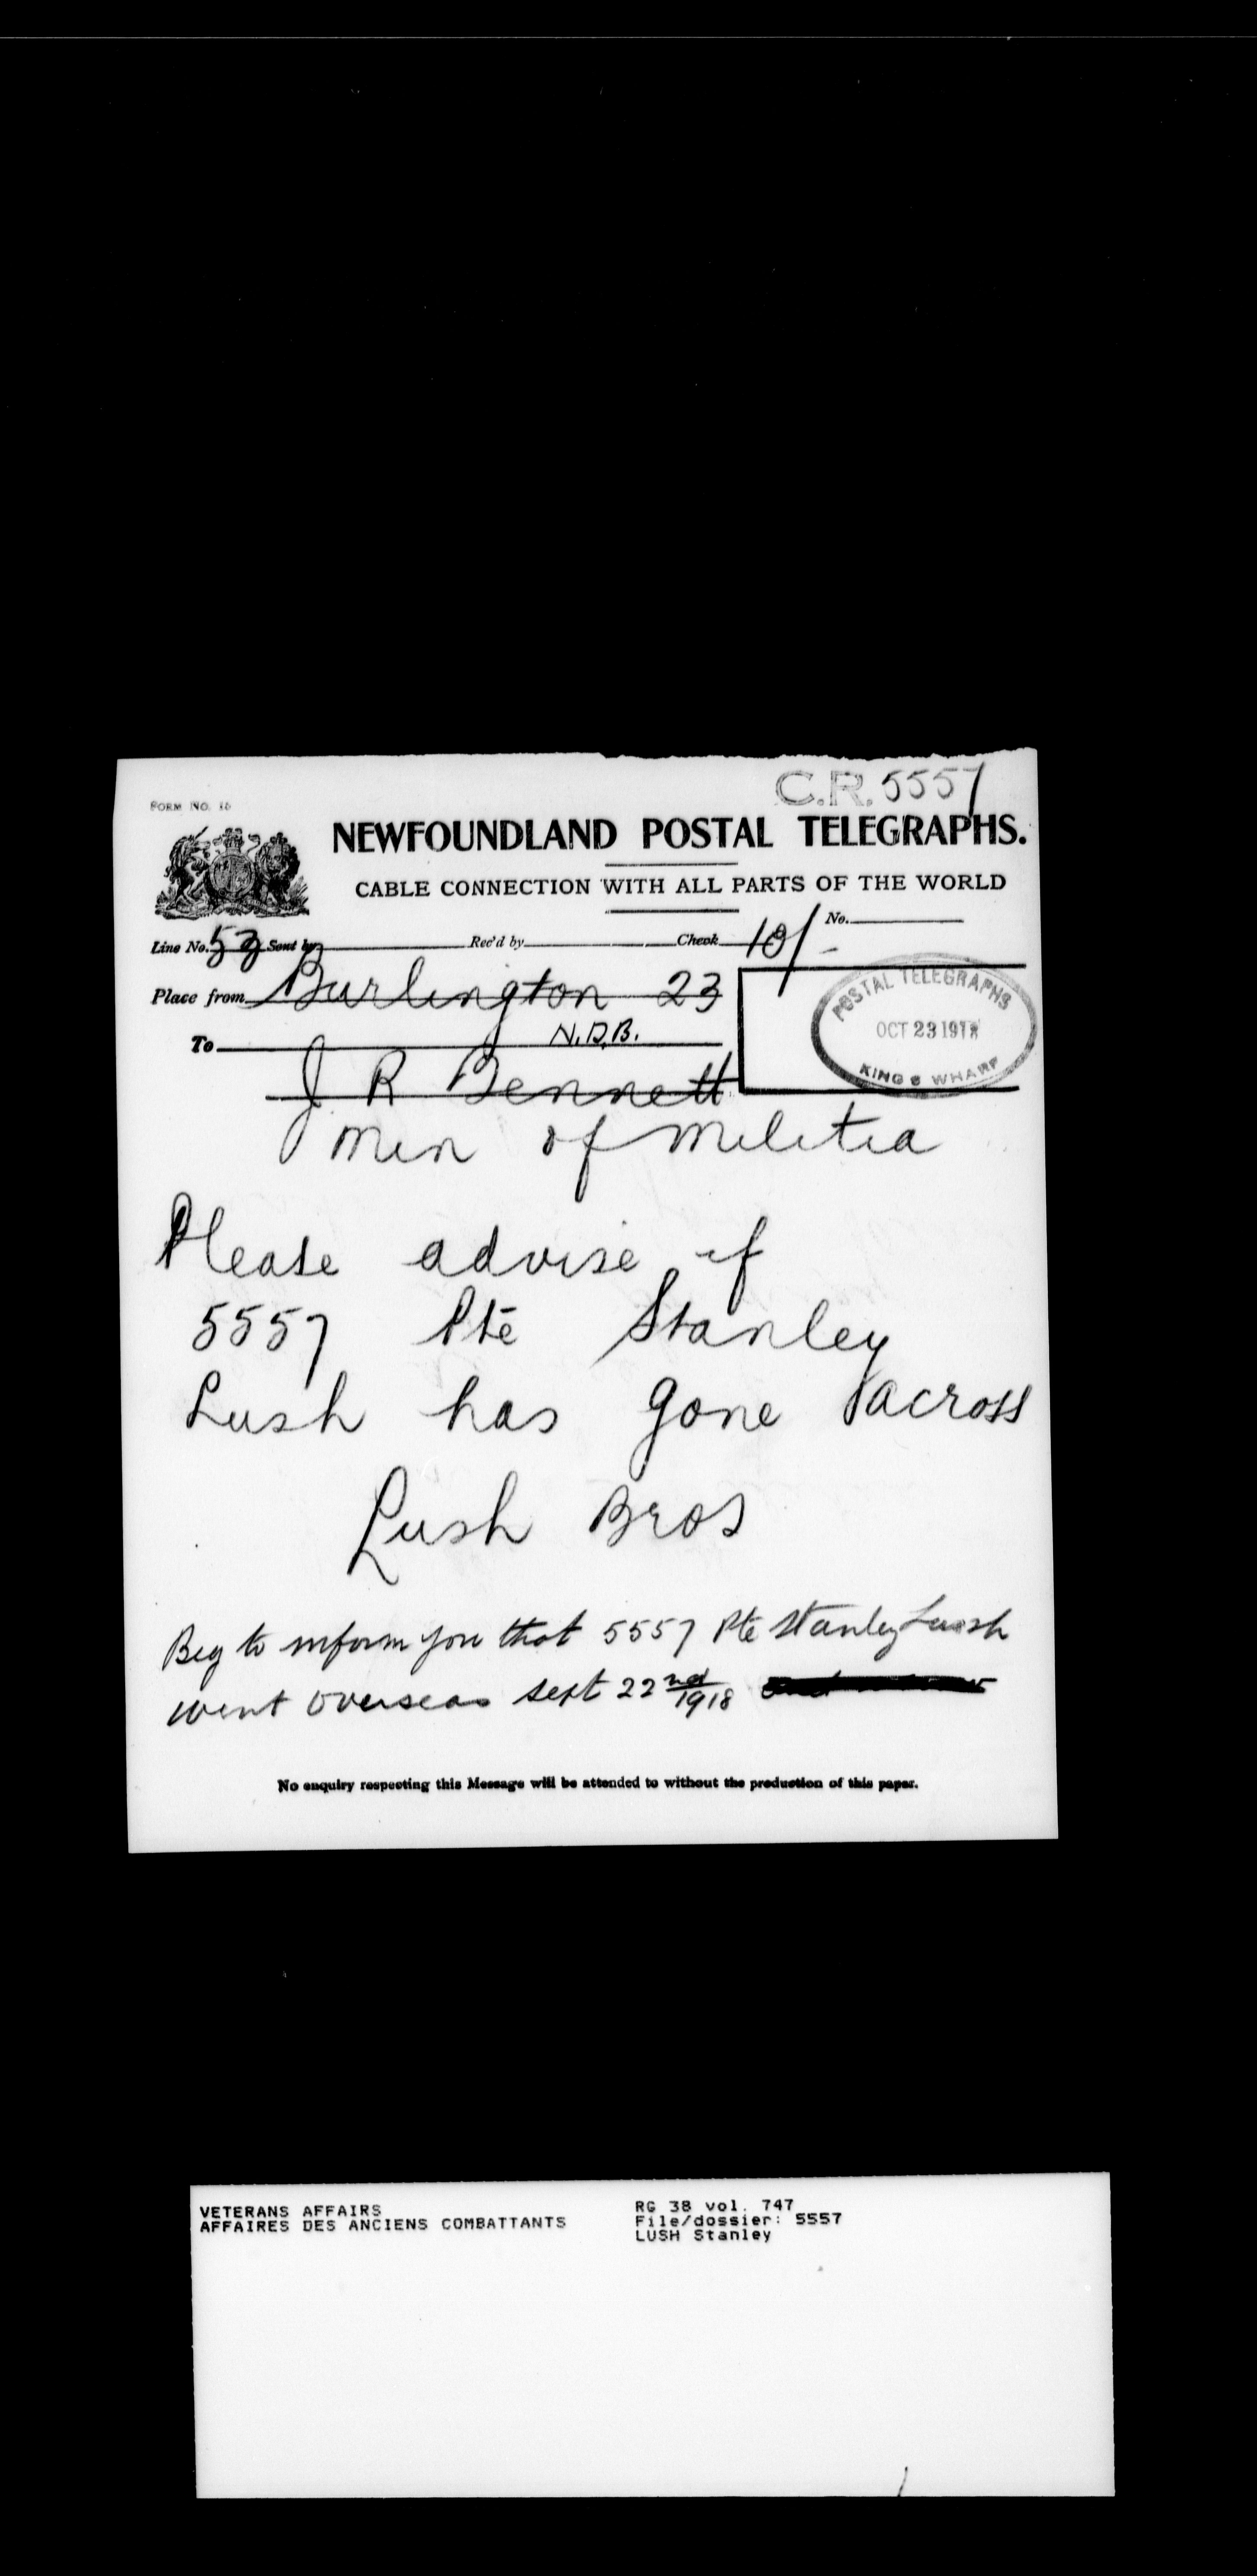 C.R. 5557
FORM NO. 16
NEWFOUNDLAND POSTAL TELEGRAPHS.
CABLE CONNECTION WITH ALL PARTS OF THE WORLD
No.
Line No. 53 Sent by Rec'd by Check 10/-
Place from Burlington 23
POSTAL TELEGRAPHS
OCT 23 1918
KING'S WHARF
To N.D.B.
J R Bennett
Min of Militia
Please advise if
5557 Pte Stanley
Lush has gone across
Lush Bros
Beg to inform you that 5557 Pte Stanley Lush
went overseas Sept 22nd 1918
No enquiry respecting this Message will be attended to without the production of this paper.
VETERANS AFFAIRS
AFFAIRES DES ANCIENS COMBATTANTS
RG 38 vol. 747
File/dossier: 5557
LUSH Stanley